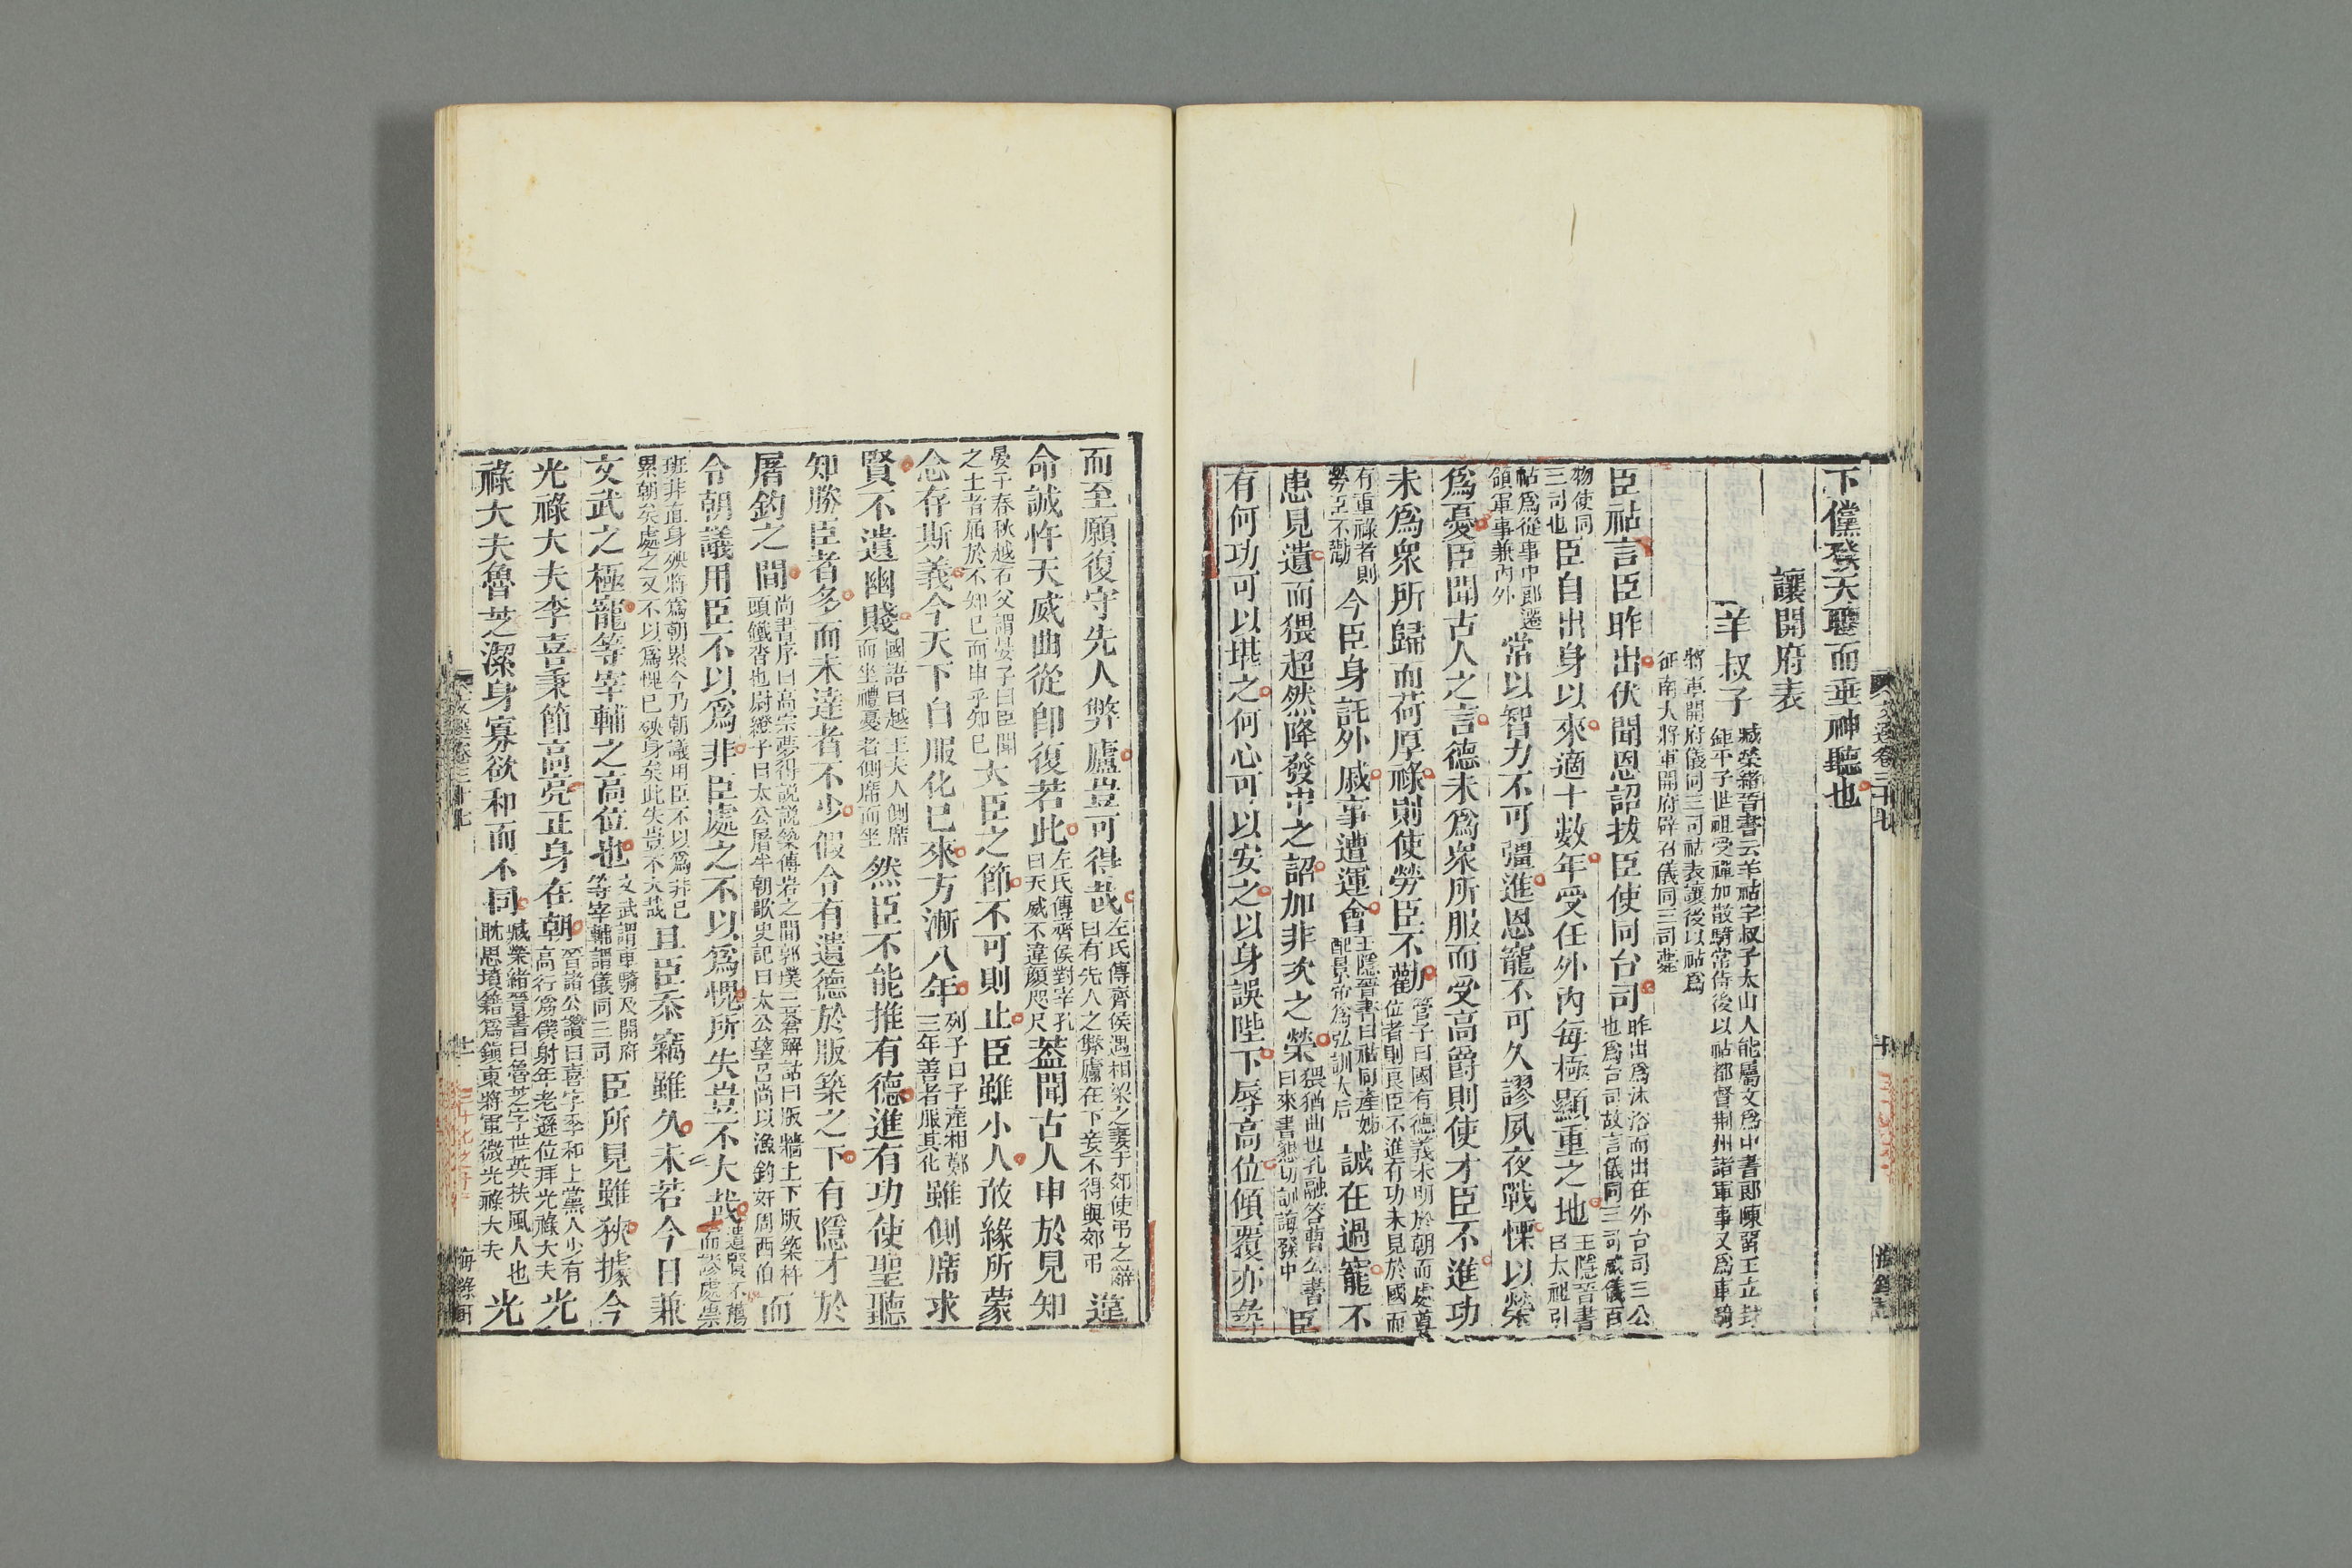 下儻發天聰而垂神聽也
讓開府表
羊叔子
臧榮緒晉書云羊祜字叔子太山人能屬文爲中書郎陳留王立封
鉅平子世祖受禪加散騎常侍後以祜都督荆州諸軍事又爲車騎
將軍開府儀同三司祜表讓後以祜爲
征南大將軍開府辟召儀同三司薨
臣祜言臣昨出伏聞恩詔拔臣使同台司
昨出爲沐浴而出在外台司三公
也爲台司故言儀同三司威儀百
物使同
三司也
臣自出身以來適十數年受任外內每極顯重之地
王隱晉書
曰太祖引
祜爲從事中郎遷
領軍事兼內外
常以智力不可彊進恩寵不可久謬夙夜戰慄以榮
爲憂臣聞古人之言德未爲衆所服而受高爵則使才臣不進功
未爲衆所歸而荷厚祿則使勞臣不勸
管子曰國有德義未明於朝而處尊
位者則良臣不進有功未見於國而
有重祿者則
勞臣不勸
今臣身託外戚事遭運會
王隱晉書曰祜同產姊
配景帝爲弘訓太后
誠在過寵不
患見遺而猥超然降發中之詔加非次之榮
猥猶曲也孔融答曹公書
曰來書懇切訓誨發中
臣
有何功可以堪之何心可以安之以身誤陛下辱高位傾覆亦尋
而至願復守先人弊廬豈可得哉
左氏傳齊侯遇杞梁之妻于郊使弔之辭
曰有先人之弊廬在下妾不得與郊弔
違
命誠忤天威曲從即復若此
左氏傳齊侯對宰孔
曰天威不違顏咫尺
蓋聞古人申於見知
晏子春秋越石父謂晏子曰臣聞
之士者屈於不知已而申乎知已
大臣之節不可則止臣雖小人敢緣所蒙
念存斯義今天下自服化已來方漸八年
列子曰子產相鄭
三年善者服其化
雖側席求
賢不遺幽賤
國語曰越王夫人側席
而坐禮憂者側席而坐
然臣不能推有德進有功使聖聽
知勝臣者多而未達者不少假令有遺德於版築之下有隱才於
屠釣之間
尚書序曰高宗夢得說說築傅岩之間郭璞三蒼解詁曰版牆上下版築杵
頭鐵沓也尉繚子曰太公屠牛朝歌史記曰太公望呂尚以漁釣奸周西伯
而
令朝議用臣不以爲非臣處之不以爲愧所失豈不大哉
遺賢不薦
而謬處崇
班非直身殃將爲朝累今乃朝議用臣不以爲非已
累朝矣處之又不以爲愧已殃身矣此失豈不大哉
且臣忝竊雖久未若今日兼
文武之極寵等宰輔之高位也
文武謂車騎及開府
等宰輔謂儀同三司
臣所見雖狹據今
光祿大夫李喜秉節高亮正身在朝
晉諸公讚曰喜字季和上黨人少有
高行爲僕射年老遜位拜光祿大夫
光
祿大夫魯芝潔身寡欲和而不同
臧榮緒晉書曰魯芝字世英扶風人也
耽思墳籍爲鎭東將軍徵光祿大夫
光
文選卷三十七
海錄軒